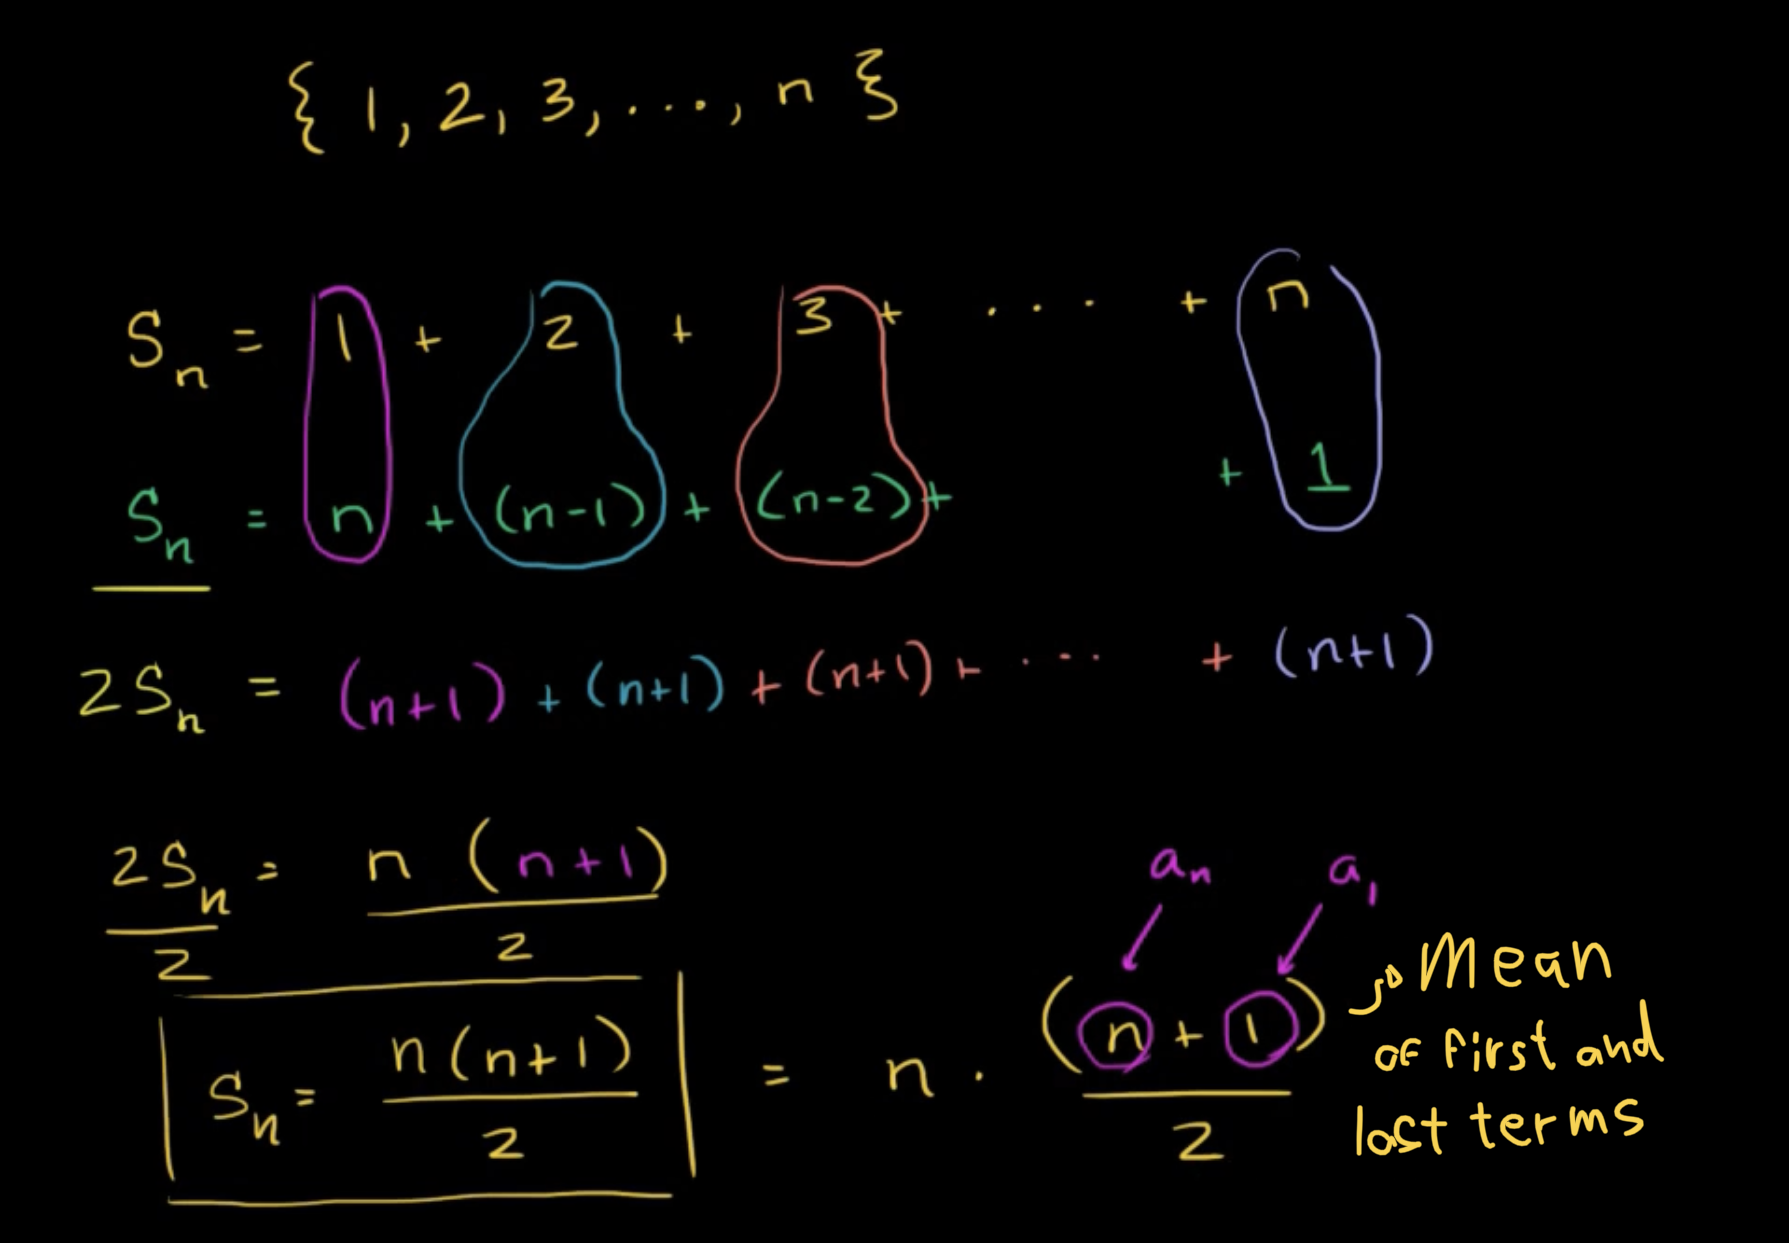 { 1, 2, 3, ..., n }
Sₙ = 1 + 2 + 3 + ... + n
Sₙ = n + (n-1) + (n-2) + + 1
2Sₙ = (n+1) + (n+1) + (n+1) + ... + (n+1)
2Sₙ/2 = n(n+1)/2
aₙ a₁
Sₙ = n(n+1)/2 = n · (n+1)/2
Mean
of first and
last terms